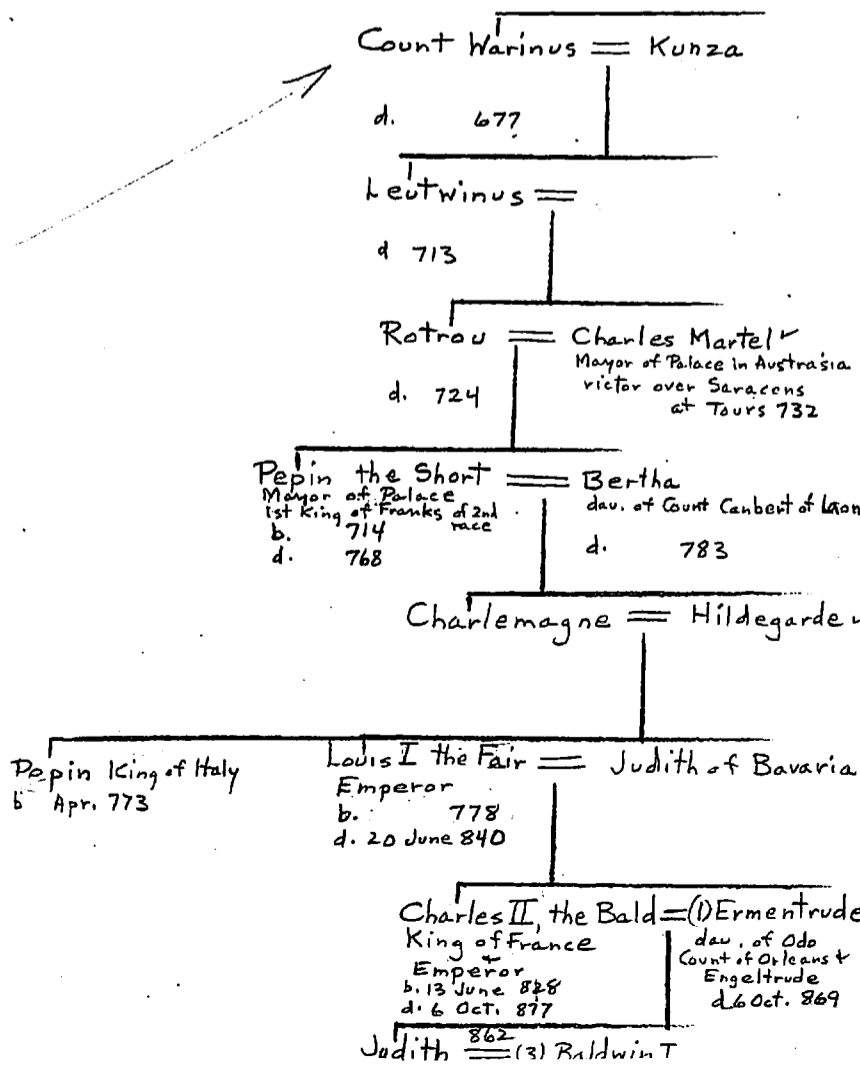 Count Warinus = Kunza
d. 677
Leutwinus =
d 713
Rotrou = Charles Martel ✓
Mayor of Palace in Austrasia
victor over Saracens
at Tours 732
d. 724
Pepin the Short = Bertha
Mayor of Palace
1st King of Franks of 2nd
race
b. 714
d. 768
dau. of Count Canbert of Laon
d. 783
Charlemagne = Hildegarde ✓
Pepin King of Italy
b Apr. 773
Louis I the Fair = Judith of Bavaria
Emperor
b. 778
d. 20 June 840
Charles II, the Bald = (1) Ermentrude
King of France
+
Emperor
b. 13 June 828
d. 6 Oct. 877
dau. of Odo
Count of Orleans +
Engeltrude
d 6 Oct. 869
862
Judith = (3) Baldwin I